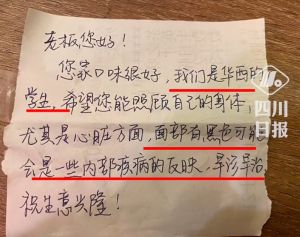 老板您好！
您家口味很好，我们是华西的
学生，希望您能照顾自己的身体，
尤其是心脏方面，面部有黑色可能
会是一些内部疾病的反映，早诊早治。
祝生意兴隆！
四川
日报